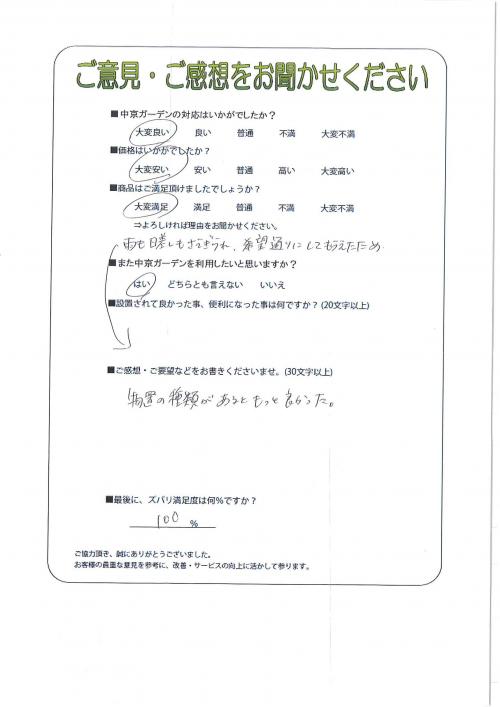 ご意見・ご感想をお聞かせください
■中京ガーデンの対応はいかがでしたか？
大変良い 良い 普通 不満 大変不満
■価格はいかがでしたか？
大変安い 安い 普通 高い 大変高い
■商品はご満足頂けましたでしょうか？
大変満足 満足 普通 不満 大変不満
⇒よろしければ理由をお聞かせください。
雨も日差しもさえぎられ、希望通りにしてもらえたため
■また中京ガーデンを利用したいと思いますか？
はい どちらとも言えない いいえ
■設置されて良かった事、便利になった事は何ですか？(20文字以上)
■ご感想・ご要望などをお書きくださいませ。(30文字以上)
物置の種類があるともっと良かった。
■最後に、ズバリ満足度は何％ですか？
100 ％
ご協力頂き、誠にありがとうございました。
お客様の貴重な意見を参考に、改善・サービスの向上に活かして参ります。